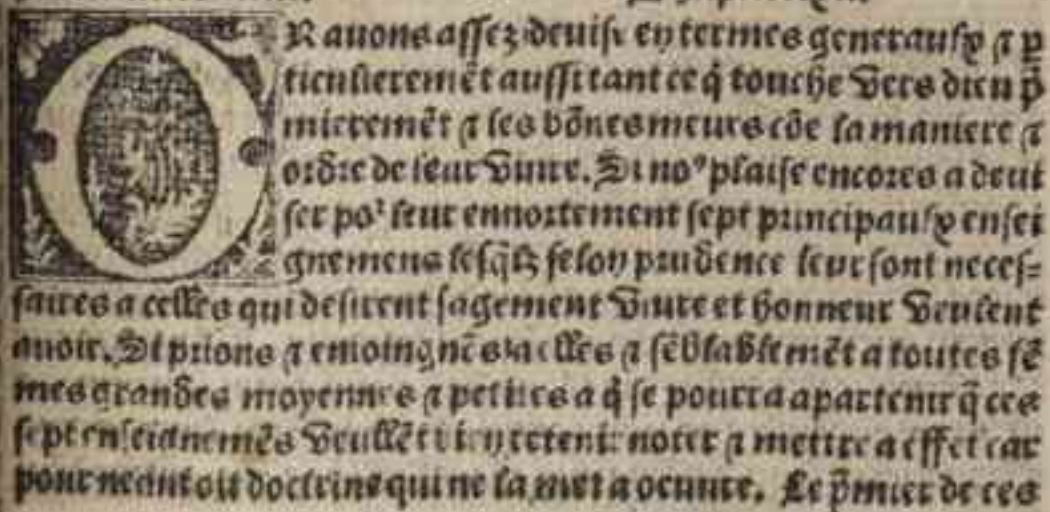 OR auons assez deuise en termes generaulx ⁊ p̲
ticulieremẽt aussi tant ce q̃ touche vers dieu p̃
mieremẽt ⁊ les bõnes meurs cõe la maniere ⁊
ordre de leur viure. Si noꝰ plaise encores a deui
ser poᵗ leur ennortement sept principaulx ensei
gnemens lesq̃lz selon prudence leur sont neces-
saires a celles qui desirent sagement viure et honneur veulent
auoir. Si prions ⁊ emoingnẽs a elles ⁊ sẽblablemẽt a toutes fẽ
mes grandes moyennes ⁊ petites a q̃ se pourra apartenir q̃ ces
sept enseignemẽs veullẽt bien retenir noter ⁊ mettre a effet car
pour neant oit doctrine qui ne la met a oeuure. Le p̃mier de ces